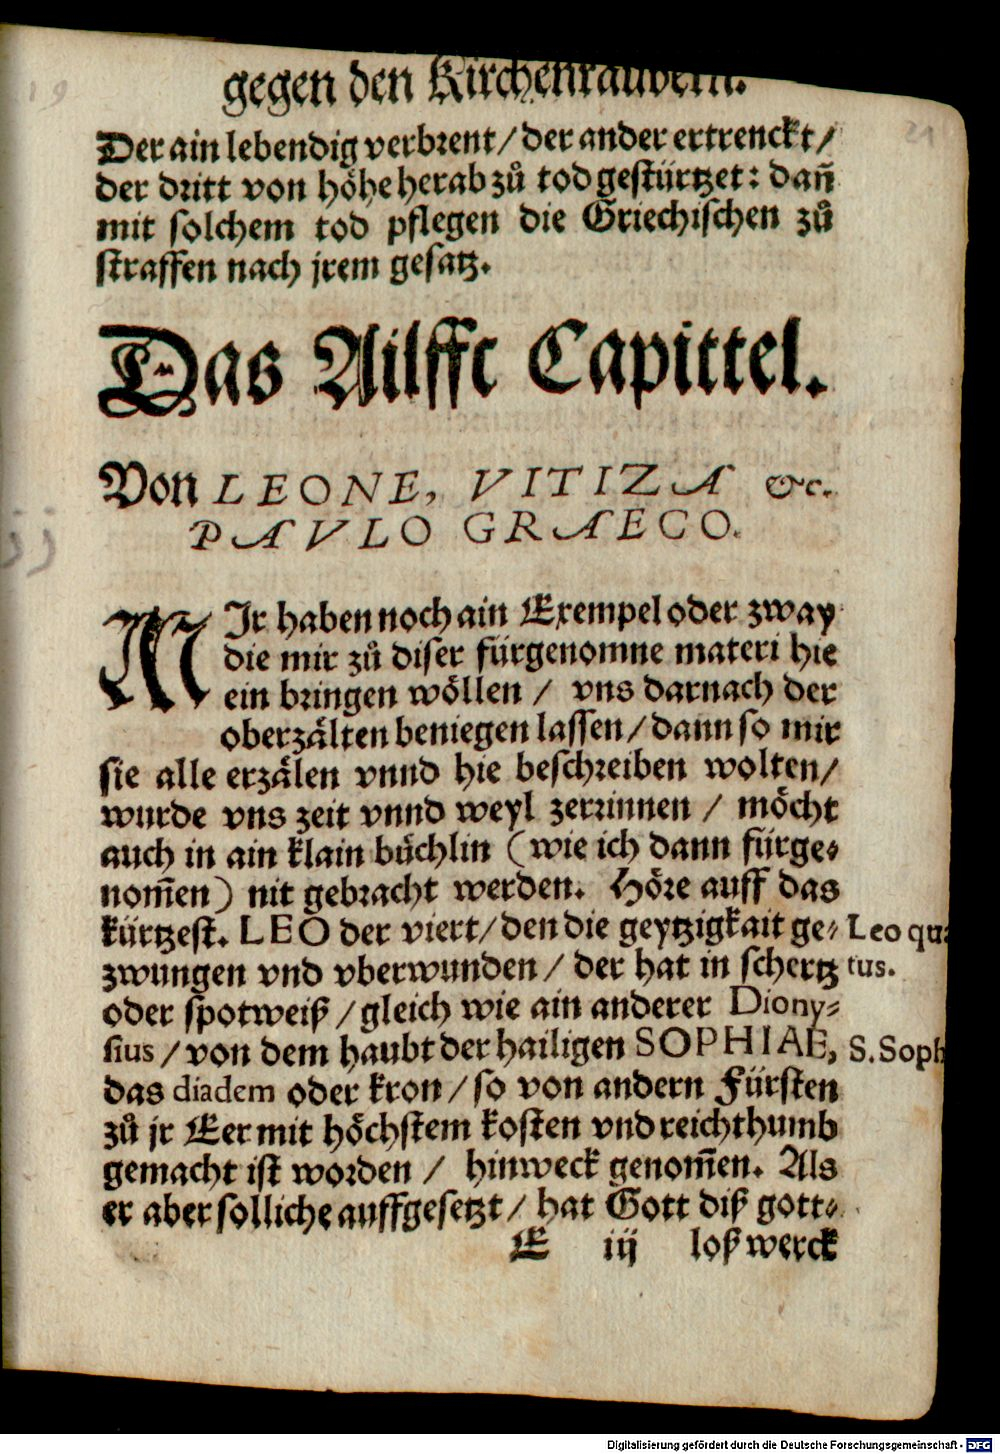 gegen den Kirchenraubern.
Der ain lebendig verbrent / der ander ertrenckt /
der dritt von höhe herab zů tod gestürtzet: dañ
mit solchem tod pflegen die Griechischen zů
straffen nach jrem gesatz.
Das Ailfft Capittel.
Von LEONE, VITIZA &c.
PAVLO GRAECO.
MIr haben noch ain Exempel oder zway
die mir zů diser fürgenomne materi hie
ein bringen wöllen / vns darnach der
oberzälten beniegen lassen / dann so mir
sie alle erzälen vnnd hie beschreiben wolten /
wurde vns zeit vnnd weyl zerrinnen / möcht
auch in ain klain büchlin (wie ich dann fürge-
nom̄en) nit gebracht werden. Höre auff das
kürtzest. LEO der viert / den die geytzigkait ge- Leo qua
zwungen vnd vberwunden / der hat in schertz tus.
oder spotweiß / gleich wie ain anderer Diony-
sius / von dem haubt der hailigen SOPHIAE, S. Soph
das diadem oder kron / so von andern Fürsten
zů jr Eer mit höchstem kosten vnd reichthumb
gemacht ist worden / hinweck genom̄en. Als
er aber solliche auffgesetzt / hat Gott diß gott-
E iij loß werck
Digitalisierung gefördert durch die Deutsche Forschungsgemeinschaft - DFG